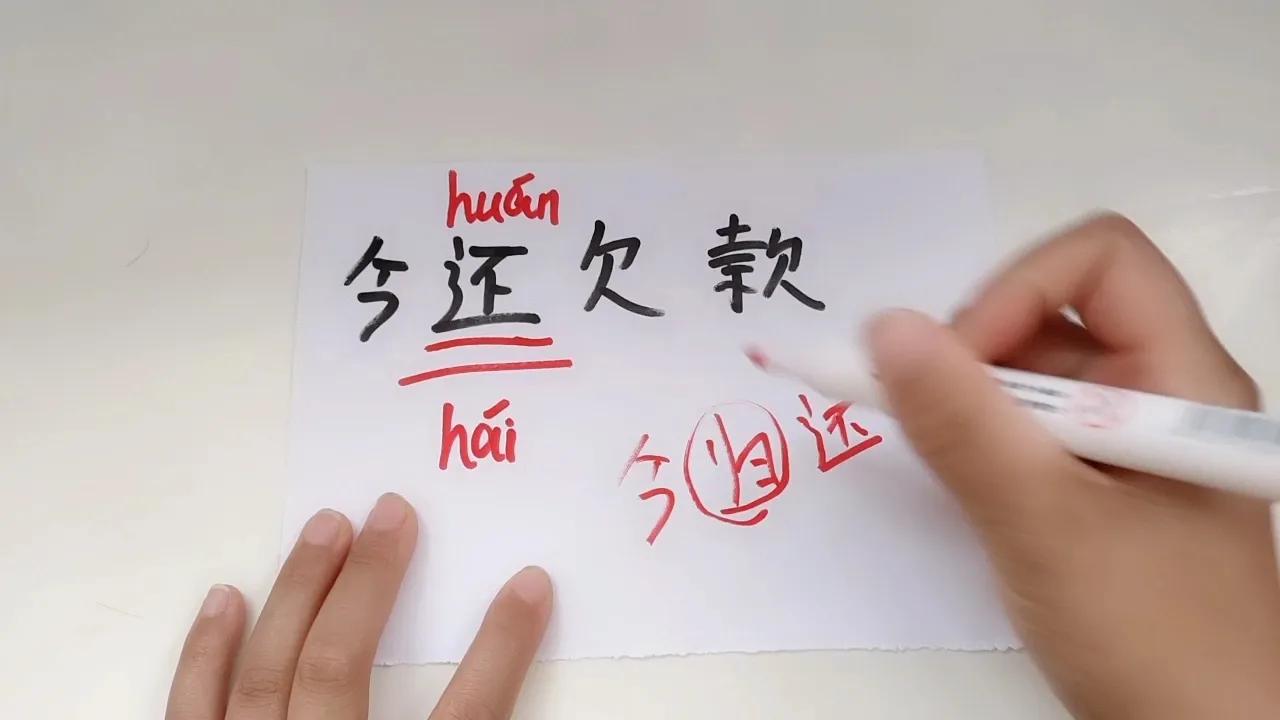 huán
今还欠款
hái
今归还